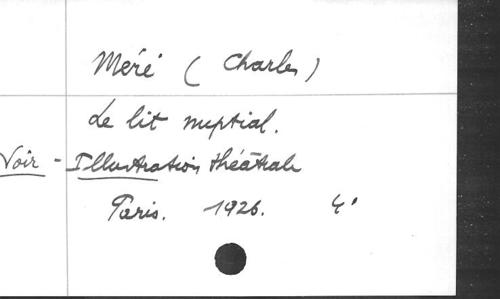 Méré ( Charles )
Le lit nuptial.
Voir - Illustration théâtrale
Paris. 1926. 4°